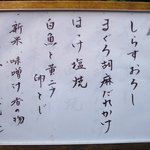 しらすおろし
まぐろ胡麻だれかけ
ほっけ塩焼
白魚と黄ニラ
卵とじ
新米、味噌汁 香の物